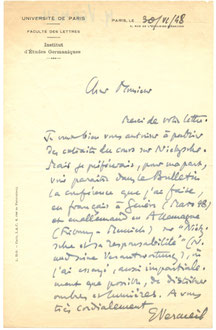 UNIVERSITÉ DE PARIS
FACULTÉ DES LETTRES
Institut
d'Études Germaniques
PARIS, LE 30/VI/48
Cher Monsieur
Merci de votre lettre.
Je veux bien vous autoriser à publier
des extraits du cours sur Nietzsche.
Mais je préférerais, pour ma part,
voir paraître dans le Bulletin
la conférence que j'ai faite,
en français à Genève (Mars 48)
et en allemand en Allemagne
(Fribourg - Munich) sur "Nietz-
sche et sa responsabilité" (N.
und seine Verantwortung), où
j'ai essayé, aussi impartiale-
ment que possible, de distribuer
ombres et lumières. A vous
très cordialement
E Vermeil